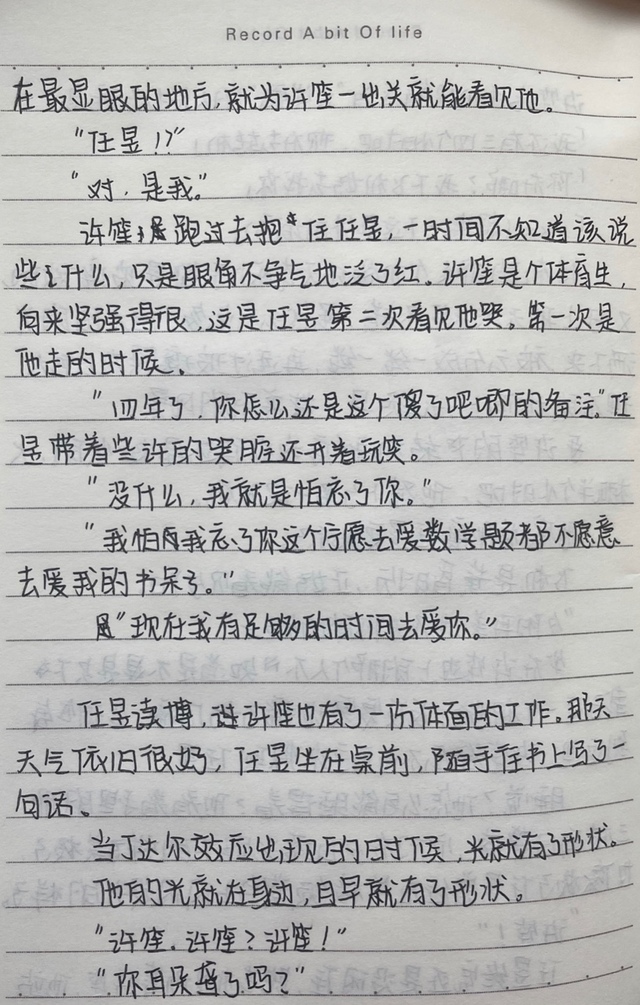 Record A bit Of life
在最显眼的地方,就为许笙一出关就能看见他。
"任昱!?"
"对,是我。"
许笙跑过去抱住任昱,一时间不知道该说
些什么,只是眼角不争气地泛了红。许笙是个体育生,
向来坚强得很,这是任昱第二次看见他哭。第一次是
他走的时候。
"四年了,你怎么还是这个傻了吧唧的备注。"任
昱带着些许的哭腔还开着玩笑。
"没什么,我就是怕忘了你。"
"我怕我忘了你这个宁愿去爱数学题都不愿意
去爱我的书呆子。"
"现在我有足够的时间去爱你。"
任昱读博,许笙也有了一份体面的工作。那天
天气依旧很好,任昱坐在桌前,随手在书上写了一
句话。
当丁达尔效应出现的时候,光就有了形状。
他的光就在身边,且早就有了形状。
"许笙.许笙?许笙!"
"你耳朵聋了吗?"